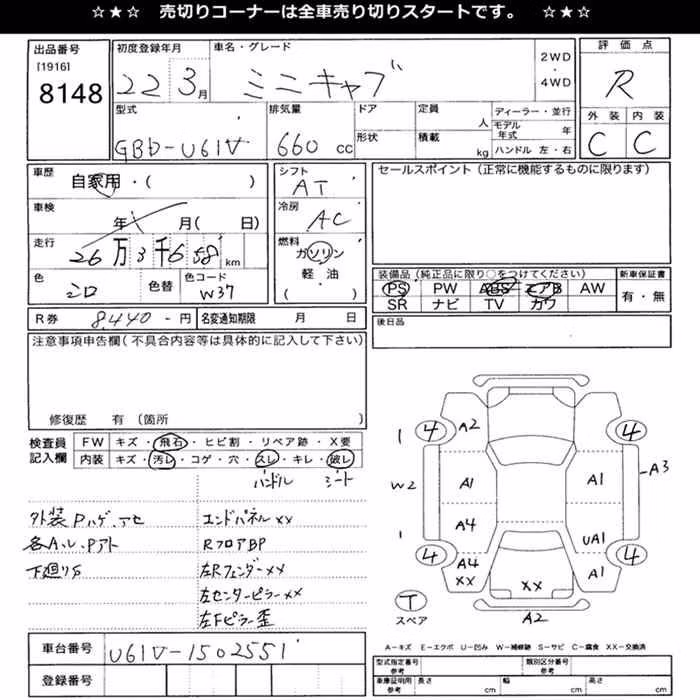 ☆★☆ 売切りコーナーは全車売り切りスタートです。 ☆★☆
出品番号
[1916]
8148
初度登録年月
22 3月
車名・グレード
ミニキャブ
2WD
・
4WD
評価点
R
外装 内装
C C
型式
GBD-U61V
排気量
660 cc
ドア
形状
定員
人
積載
kg
ディーラー・並行
モデル年式 年
ハンドル 左・右
車歴
自家用・( )
車検
年 月( 日)
走行
26万3千658km
色
シロ
色替
色コード
W37
シフト
AT
冷房
AC
燃料
ガソリン
軽・油
( )
セールスポイント(正常に機能するものに限ります)
装備品(純正品に限り○をつけてください)
PS PW ABS エアB AW
SR ナビ TV カワ
新車保証書
有・無
後日品
R券 8,440-円
名変通知期限 月 日
注意事項申告欄(不具合内容等は具体的に記入して下さい)
修復歴 有(箇所 )
検査員
記入欄
FW キズ・飛石・ヒビ割・リペア跡・X要
内装 キズ・汚レ・コゲ・穴・スレ・キレ・破レ
ハンドル シート
外装Pハゲ、アセ
各Aル、Pアト
下廻りサ
エンドパネルXX
RフロアBP
左RフェンダーXX
左センターピラーXX
左Fピラー歪
車台番号 U61V-1502551
登録番号
4 A2 4
1 A3
W2 A1 A1
A4 UA1
1
4 A4 XX A1 4
XX
T
スペア
A2
A-キズ E-エクボ U-凹み W-補修跡 S-サビ C-腐食 XX-交換済
型式指定番号
参考
類別区分番号
参考
車庫証明用
参考
長さ cm 幅 cm 高さ cm